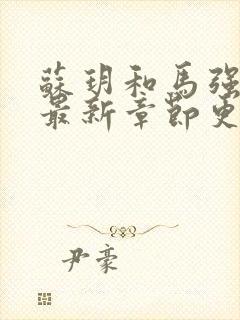 蘇玥和馬強
最新章節更
尹豪